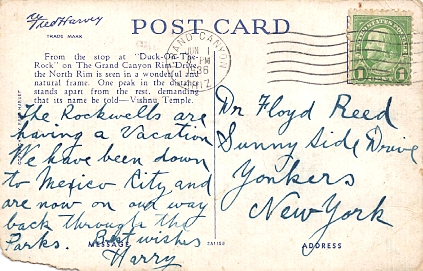 Fred Harvey
TRADE MARK
POST CARD
GRAND CANYON
JUN 1
PM
1936
ARIZ.
From the stop at "Duck-On-The-
Rock" on The Grand Canyon Rim Drive,
the North Rim is seen in a wonderful and
natural frame. One peak in the distance
stands apart from the rest, demanding
that its name be told—Vishnu Temple.
The Rockwells are
having a Vacation
We have been down
to Mexico City and
are now on our way
back through the
Parks. Best wishes
Harry
MESSAGE
Dr Floyd Reed
Sunny Side Drive
Yonkers
New York
ADDRESS